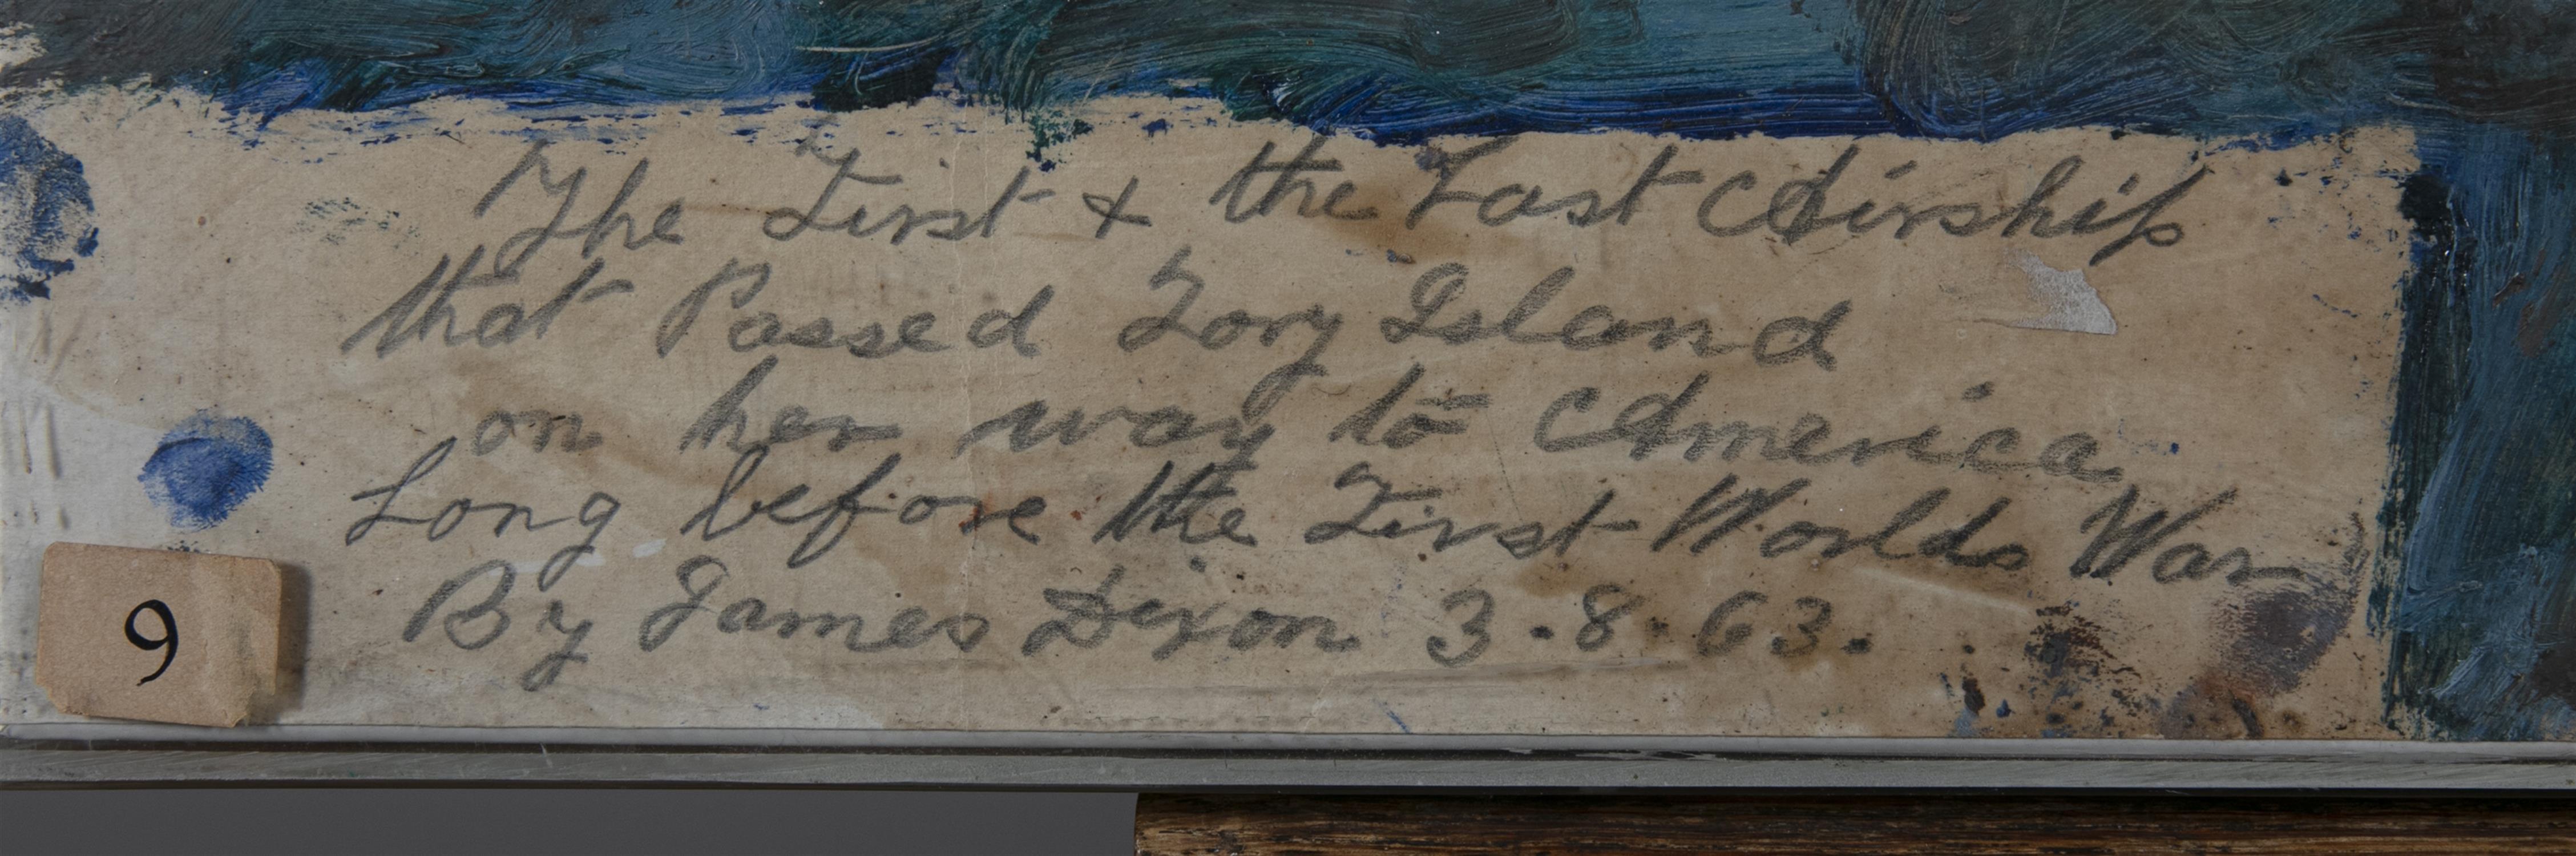 The First & the Last Airship
that Passed Tory Island
on her way to America
Long before the First Worlds War
By James Dixon 3.8.63.
9